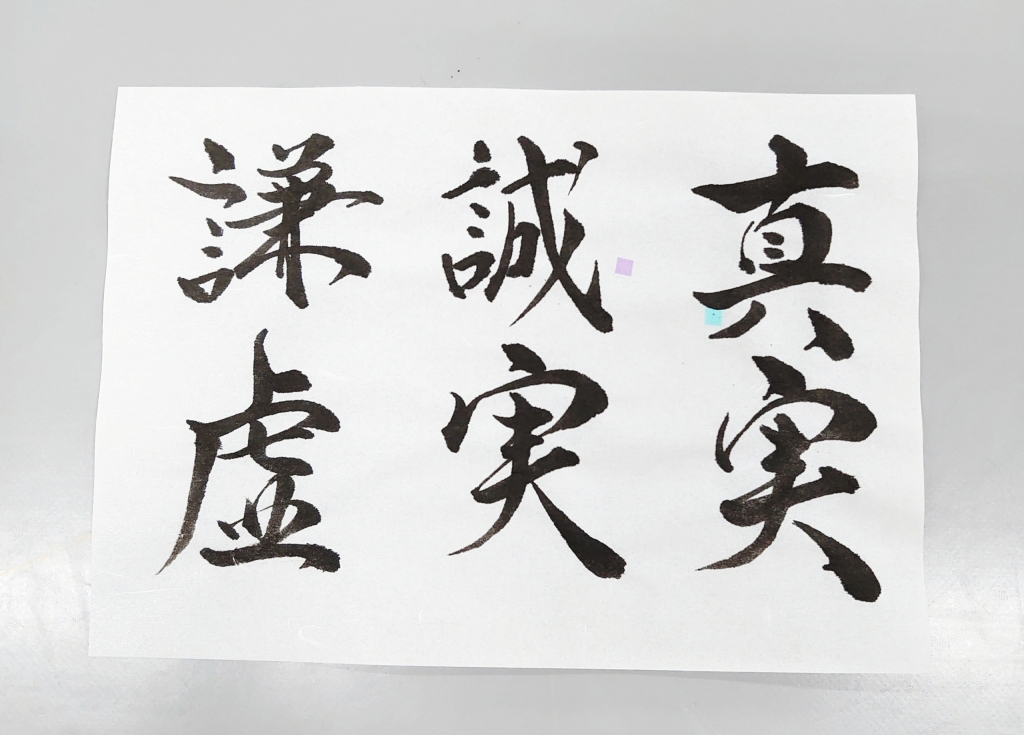 真実
誠実
謙虚